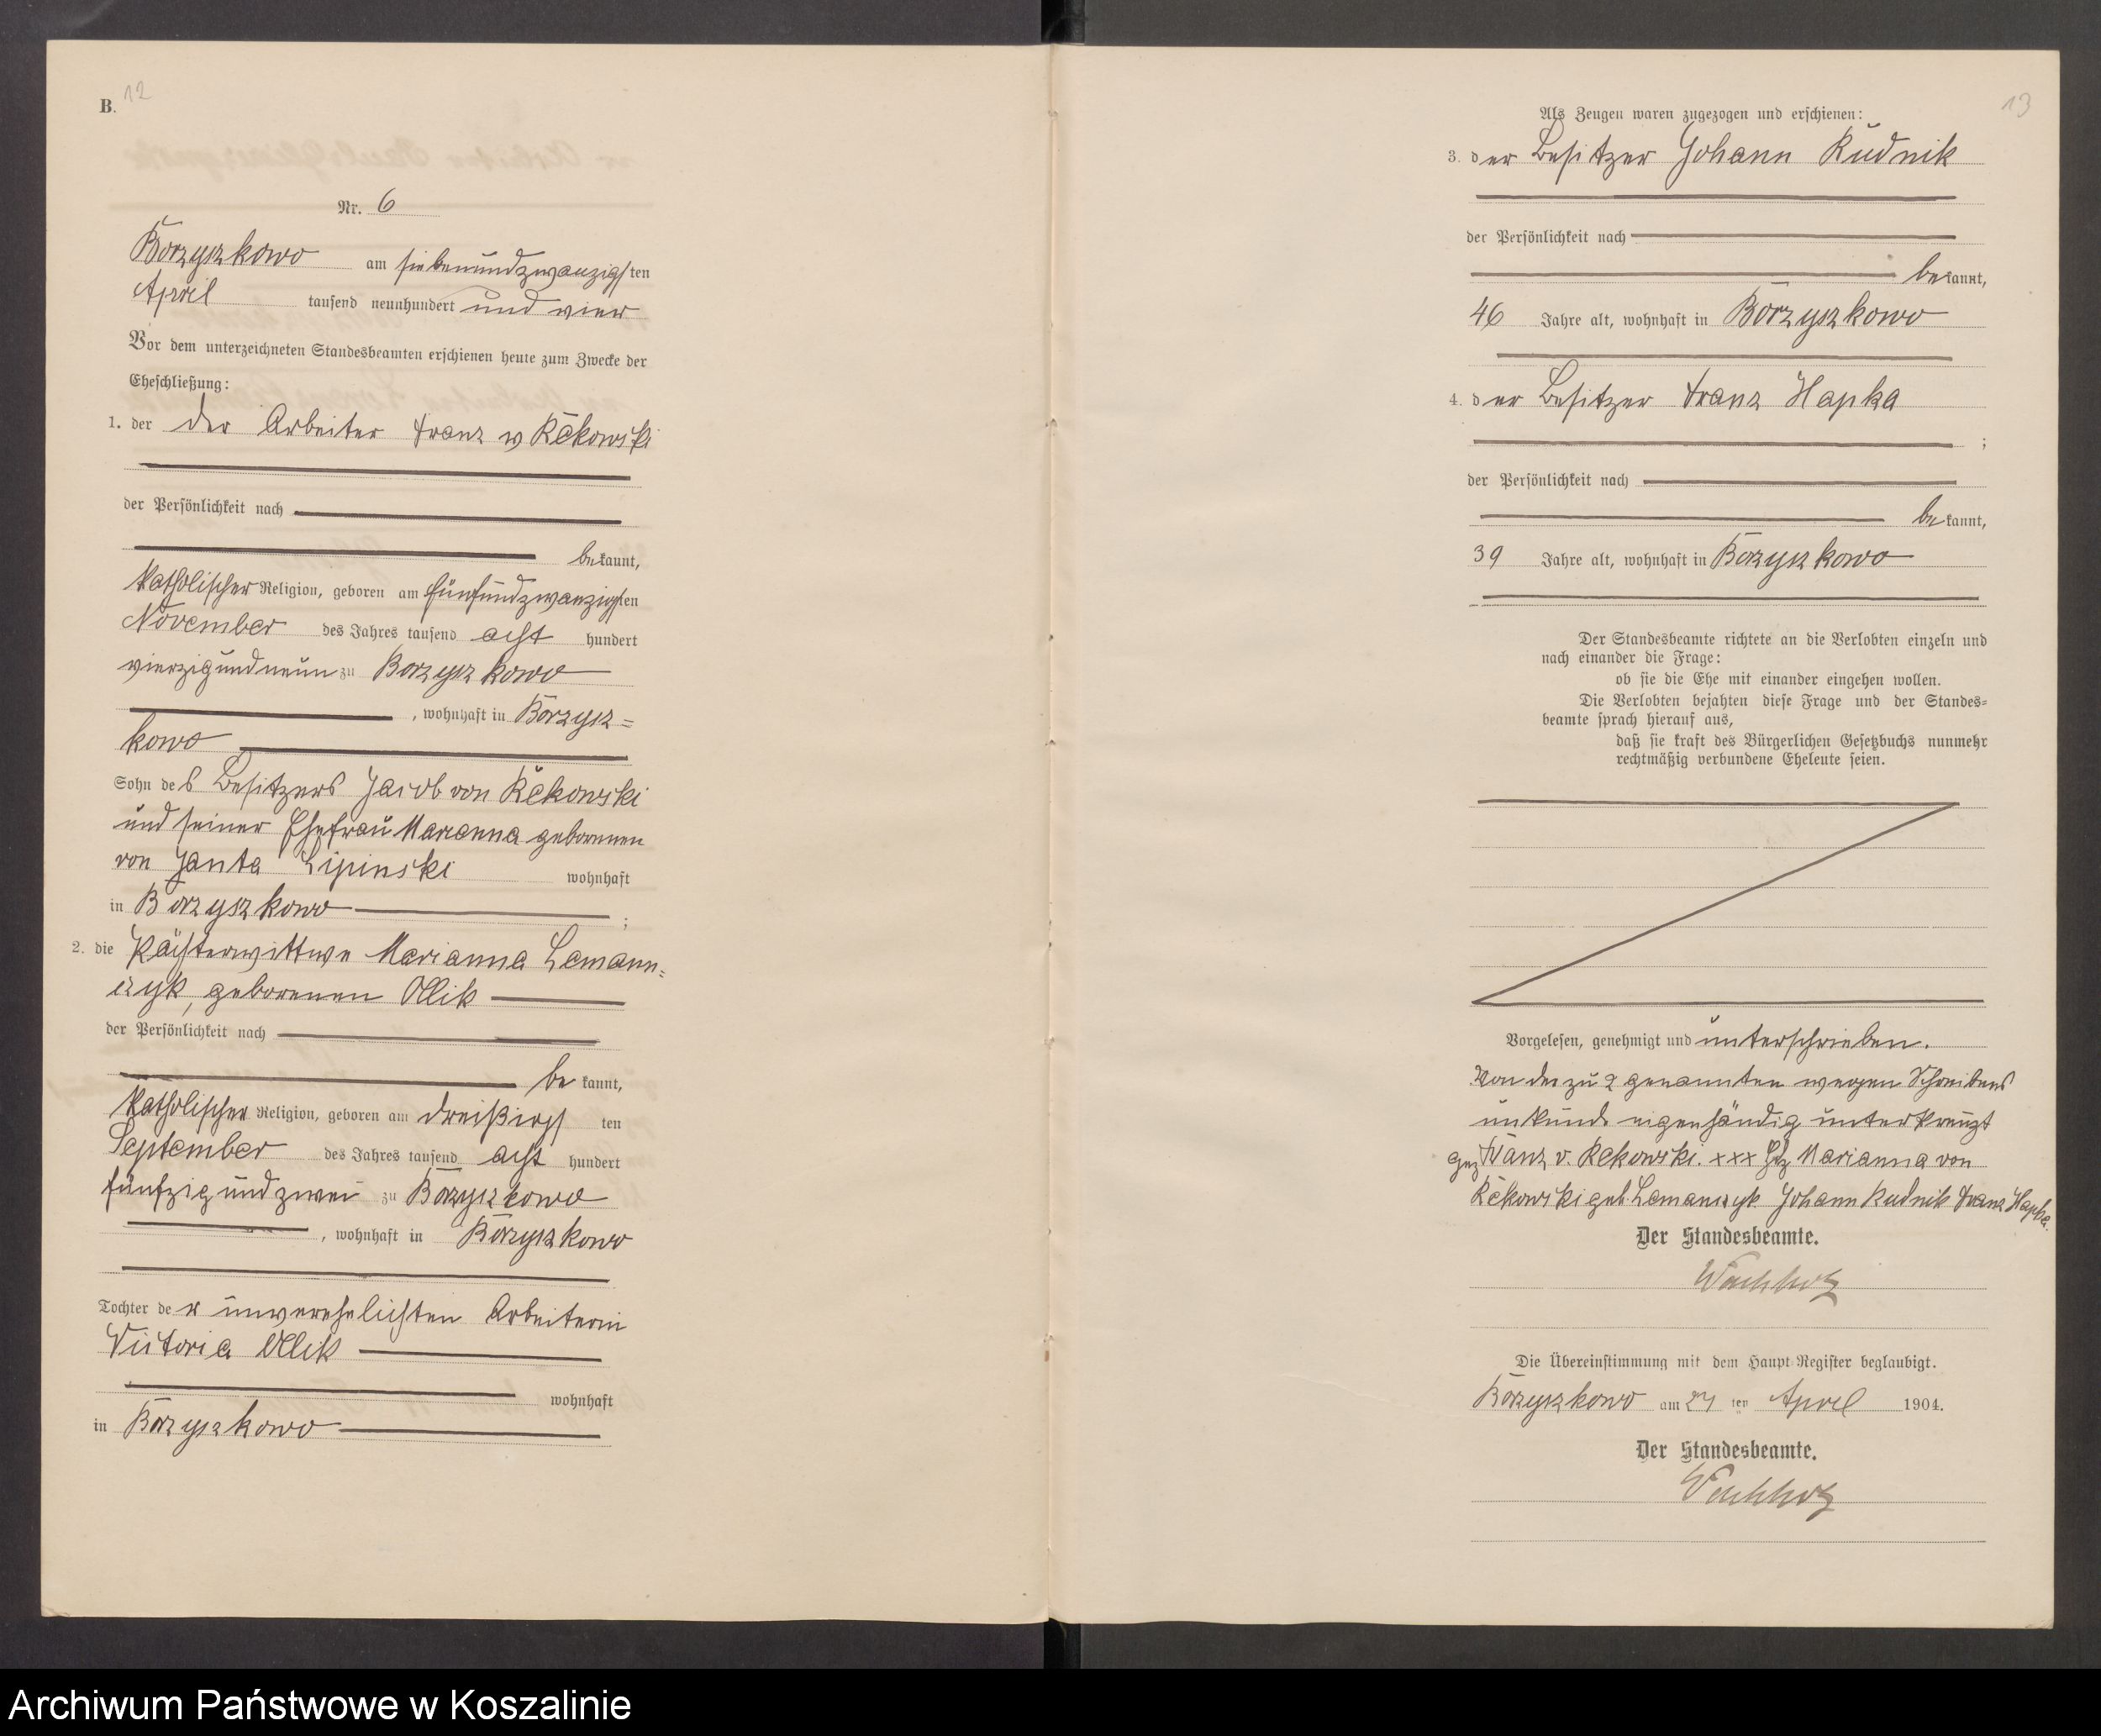 B. 12
Nr. 6
Borzyszkowo am siebenundzwanzigsten
April tausend neunhundert und vier
Vor dem unterzeichneten Standesbeamten erschienen heute zum Zwecke der
Eheschließung:
1. der der Arbeiter Franz v Rekowski
der Persönlichkeit nach
bekannt,
katholischer Religion, geboren am fünfundzwanzigsten
November des Jahres tausend acht hundert
vierzigundneun zu Borzyszkowo
, wohnhaft in Borzysz=
kowo
Sohn des Besitzers Jacob von Rekowski
und seiner Ehefrau Marianna geborenen
von Janta Lipinski wohnhaft
in Borzyszkowo ;
2. die Marianna Lemann=
czyk, geborenen Ollik
der Persönlichkeit nach
bekannt,
katholischer Religion, geboren am dreißigsten
September des Jahres tausend acht hundert
fünfzigundzwei zu Borzyszkowo
, wohnhaft in Borzyszkowo
Tochter der unverehelichten Arbeiterin
Victoria Ollik
wohnhaft
in Borzyszkowo
13
Als Zeugen waren zugezogen und erschienen:
3. der Besitzer Johann Rudnik
der Persönlichkeit nach
bekannt,
46 Jahre alt, wohnhaft in Borzyszkowo
4. der Besitzer Franz Hapka
;
der Persönlichkeit nach
bekannt,
39 Jahre alt, wohnhaft in Borzyszkowo
Der Standesbeamte richtete an die Verlobten einzeln und
nach einander die Frage:
ob sie die Ehe mit einander eingehen wollen.
Die Verlobten bejahten diese Frage und der Standes=
beamte sprach hierauf aus,
daß sie kraft des Bürgerlichen Gesetzbuchs nunmehr
rechtmäßig verbundene Eheleute seien.
Vorgelesen, genehmigt und unterschrieben.
Von der zu 2 genannten wegen Schreibens
unkunde eigenhändig unterkreuzt
gez Franz v. Rekowski. xxx Hdz Marianna von
Rekowski geb. Lemanczyk Johann Rudnik Franz Hapka.
Der Standesbeamte.
Wachholz
Die Übereinstimmung mit dem Haupt-Register beglaubigt.
Borzyszkowo am 27 ten April 1904.
Der Standesbeamte.
Wachholz
Archiwum Państwowe w Koszalinie